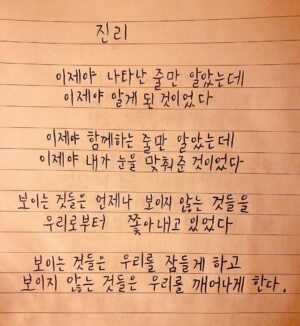 진리
이제야 나타난 줄만 알았는데
이제야 알게 된 것이었다
이제야 함께하는 줄만 알았는데
이제야 내가 눈을 맞춰준 것이었다
보이는 것들은 언제나 보이지 않는 것들을
우리로부터 쫓아내고 있었다
보이는 것들은 우리를 잠들게 하고
보이지 않는 것들은 우리를 깨어나게 한다.